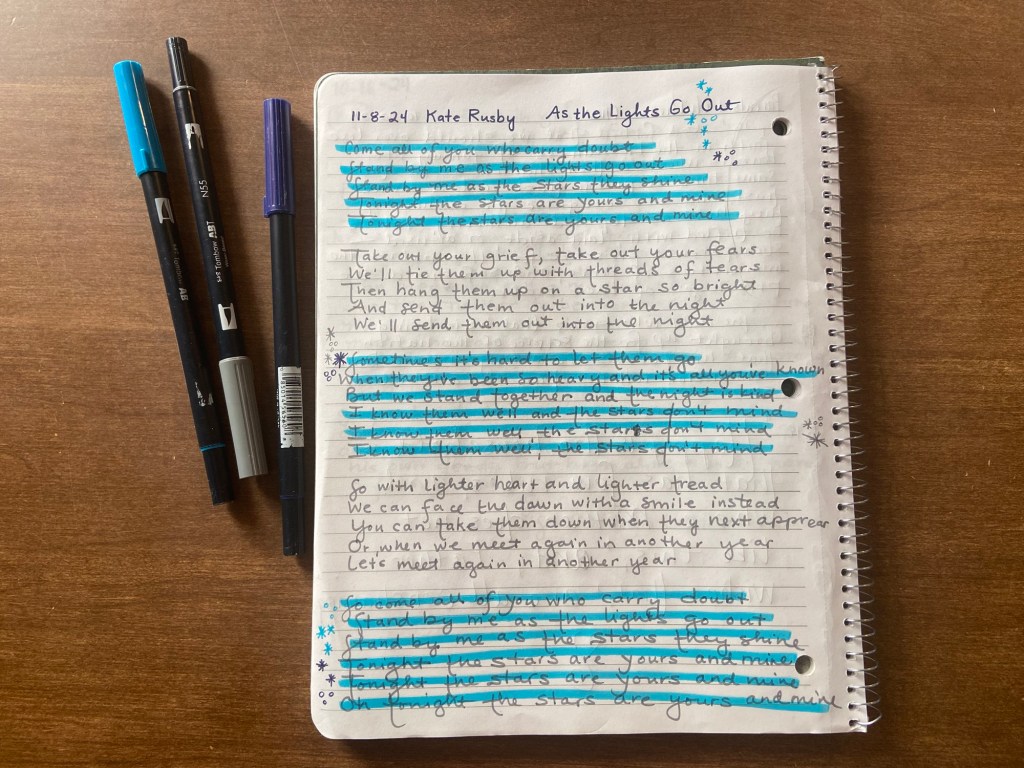 11-8-24 Kate Rusby As the Lights Go Out
Come all of you who carry doubt
Stand by me as the lights go out
Stand by me as the stars they shine
Tonight the stars are yours and mine
Tonight the stars are yours and mine
Take out your grief, take out your fears
We'll tie them up with threads of tears
Then hang them up on a star so bright
And send them out into the night
We'll send them out into the night
Sometimes it's hard to let them go
When they've been so heavy and it's all you've known
But we stand together and the night is kind
I know them well and the stars don't mind
I know them well, the stars don't mind
I know them well, the stars don't mind
So with lighter heart and lighter tread
We can face the dawn with a smile instead
You can take them down when they next apprear
Or when we meet again in another year
Let's meet again in another year
So come all of you who carry doubt
Stand by me as the lights go out
Stand by me as the stars they shine
Tonight the stars are yours and mine
Tonight the stars are yours and mine
Oh tonight the stars are yours and mine
N55
Tombow ABT
AB